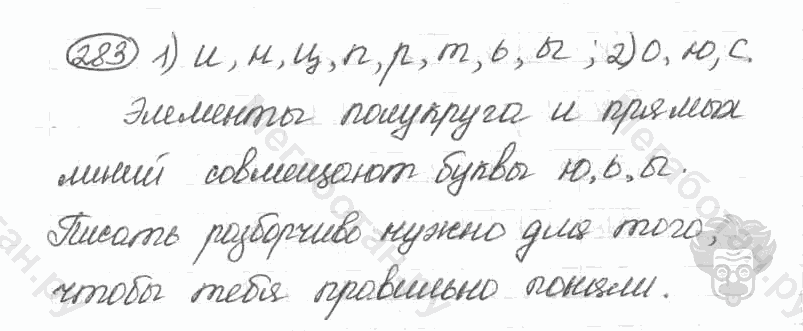 283 1) и, н, ц, п, р, т, ь, ы; 2) о, ю, с.
Элементы полукруга и прямых
линий совмещают буквы ю, ь, ы.
Писать разборчиво нужно для того,
чтобы тебя правильно поняли.